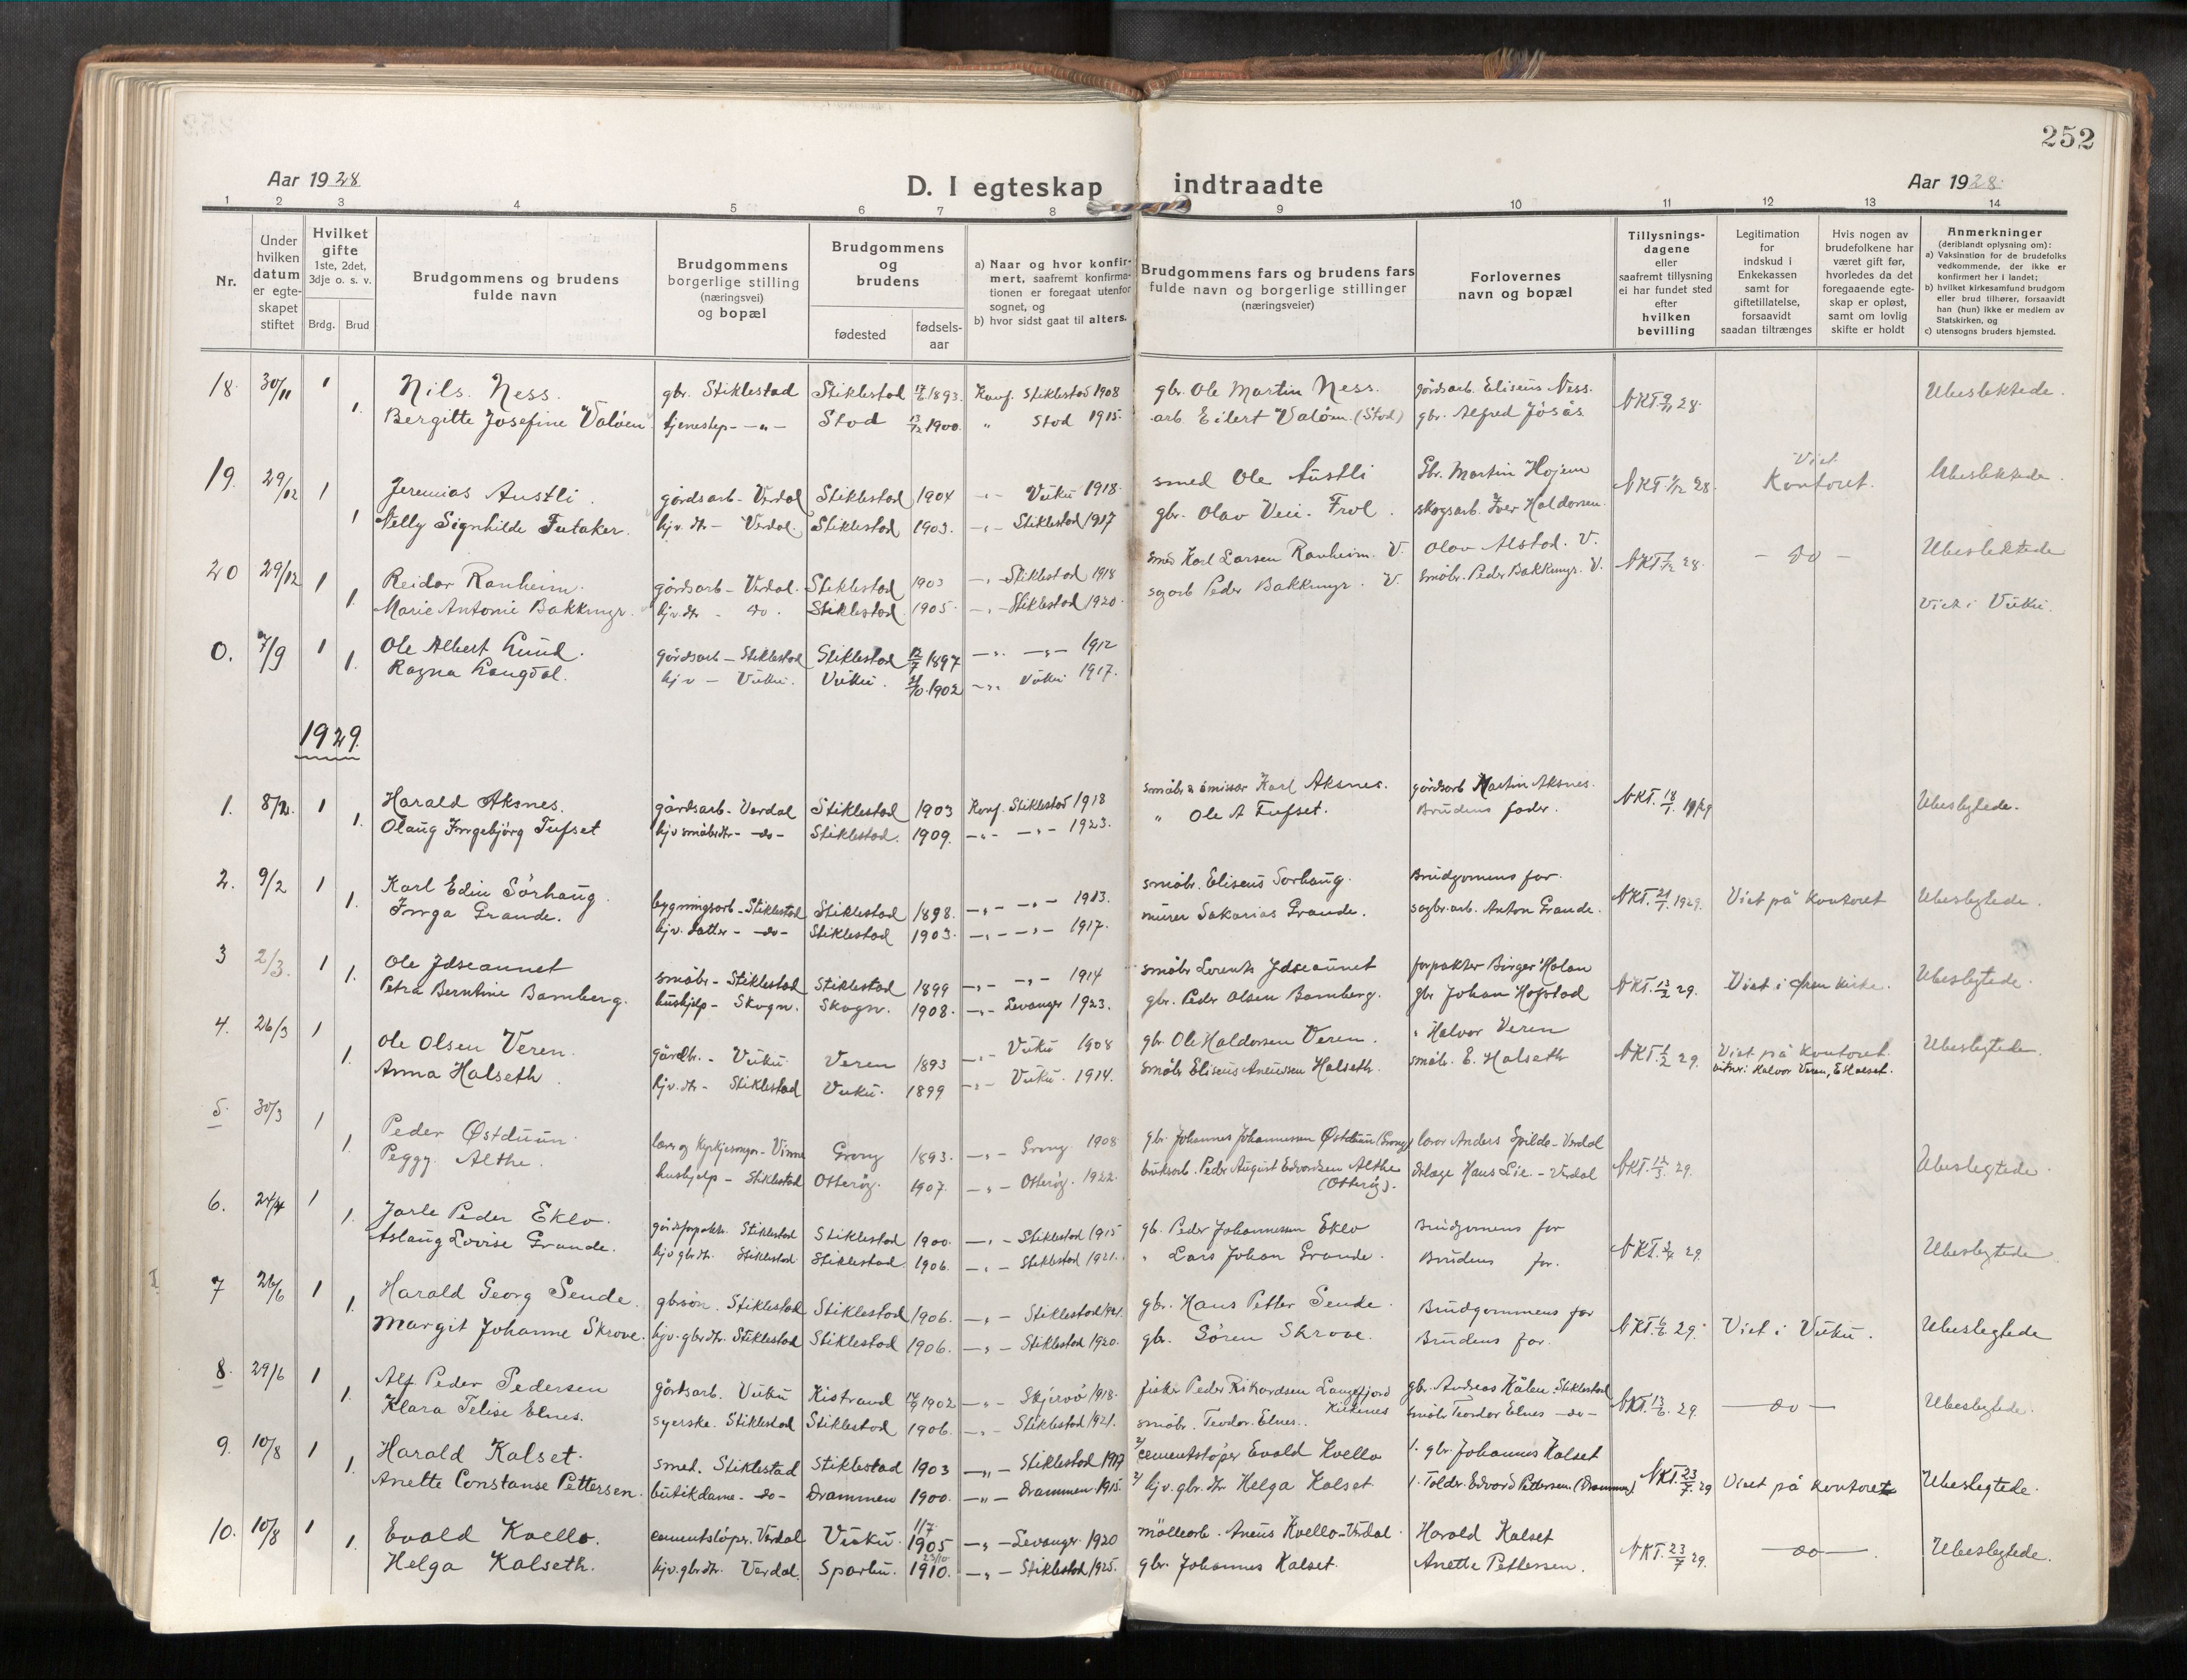 252
Aar 1928
D. I egteskap indtraadte
Aar 1928
1 2 3 4 5 6 7 8 9 10 11 12 13 14
Nr.
Under hvilken datum er egteskapet stiftet
Hvilket gifte 1ste, 2det, 3dje o. s. v.
Brdg. Brud
Brudgommens og brudens fulde navn
Brudgommens borgerlige stilling (næringsvei) og bopæl
Brudgommens og brudens
fødested
fødsels-aar
a) Naar og hvor konfirmert, saafremt konfirmationen er foregaat utenfor sognet, og
b) hvor sidst gaat til alters.
Brudgommens fars og brudens fars fulde navn og borgerlige stillinger (næringsveier)
Forlovernes navn og bopæl
Tillysningsdagene eller saafremt tillysning ei har fundet sted efter hvilken bevilling
Legitimation for indskud i Enkekassen samt for giftetillatelse, forsaavidt saadan tiltrænges
Hvis nogen av brudefolkene har været gift før, hvorledes da det foregaaende egteskap er opløst, samt om lovlig skifte er holdt
Anmerkninger
(deriblandt oplysning om):
a) Vaksination for de brudefolks vedkommende, der ikke er konfirmert her i landet;
b) hvilket kirkesamfund brudgom eller brud tilhører, forsaavidt han (hun) ikke er medlem av Statskirken, og
c) utensogns bruders hjemsted.
18. 30/11 1 Nils Ness. gbr. Stiklestad Stiklestad 1893. Konf. Stiklestad 1908 gbr. Ole Martin Ness. gårdsarb. Eliseus Ness. NKT 9/11 28. Ubeslektede.
1. Bergitte Josefine Valøen tjenestep- -„- Stod 13/12 1900. „ Stod 1915. arb. Eilert Valøen (Stod) gbr. Alfred Jøsås
19. 29/12 1 Jeremias Austli. gårdsarb - Verdal Stiklestad 1904 -„- Vuku 1918. smed Ole Austli Gbr. Martin Hojem NKT. 28. Viet Kontoret. Ubeslektede.
1 Nelly Signhilde Futaker. hjv. dtr - Verdal. Stiklestad 1903. -„- Stiklestad 1917 gbr. Olav Frol. skogsarb. Iver Haldorsen
20 29/12 1 Reidar Ranheim. gårdsarb - Verdal. Stiklestad 1903 -„- Stiklestad 1918 smed Karl Larsen Ranheim. V. Olav Alstad. V. NKT. 28. - do - Ubeslektede
1. Marie Antonie Bakkmyr. hjv. dtr - do. Stiklestad 1905. -„- Stiklestad 1920. Peder Bakkmyr. V. småbr. Peder Bakkmyr. V. Viet i Vuku.
0. 7/9 1 Ole Albert Lund. gårdsarb - Stiklestad Stiklestad 1897 -„- -„- 1912
1. Ragna Langdal. hjv - Vuku. Vuku. 1902 -„- Vuku 1917.
1929.
1. 8/2. 1 Harald Aksnes. gårdsarb - Verdal Stiklestad 1903 Konf. Stiklestad 1918 småbr & emissær Karl Aksnes. gårdsarb Martin Aksnes. NKT. 18/1. 1929 Ubeslegtede.
1. Olaug Ingebjørg Tufset hjv småbrdtr - do - Stiklestad. 1909. -„- -„- 1923. „ Ole A Tufset. Brudens fader.
2. 9/2 1 Karl Edin Sörhaug. bygningsarb - Stiklestad Stiklestad 1898. -„- -„- 1913. småbr. Eliseus Sorhaug. Brudgomens far. NKT. 21/1. 1929. Viet på kontoret Ubeslegtede.
1. Inga Grande. hjv. datter - do - Stiklestad 1903. -„- -„- 1917. murer Sakarias Grande. sagbr.arb. Anton Grande.
3 2/3. 1 Ole Idseaunet småbr - Stiklestad Stiklestad 1899 -„- -„- 1914 småbr Lorents Idseaunet forpakter Birger Holan NKT. 13/2 29. Viet i kirke. Ubeslegtede.
1. Petra Berntine Bamberg. hushjelp - Skogn. Skogn. 1908. -„- Levanger 1923. gbr. Peder Olsen Bamberg. gbr Johan Hogstad
4. 26/3 1 Ole Olsen Veren. gårdbr. - Vuku. Veren 1893 -„- Vuku 1908 gbr. Ole Haldorsen Veren. „ Halvor Veren NKT. 29. Viet på kontoret. Ubeslegtede.
1. Anna Halseth hjv. dtr - Stiklestad Vuku. 1899 -„- Vuku. 1914. småbr Eliseus Halseth. småbr. E. Halseth vitner: Halvor Veren, E Halset.
5. 30/3 1 Peder Østduun lærer og kyrkjesonger - Vinne Grong 1893. -„- Grong 1908. gbr. Johannes Johannessen Østduun (Grong) lærer Anders Spildo - Verdal NKT. 12/3. 29. Ubeslegtede.
1. Peggy Althe. hushjelp - Stiklestad Otterøy. 1907. -„- Otterøy. 1922. bruksarb. Peder August Edvardsen Althe (Otterøy). Hans Lie. - Verdal
6. 24/4 1 Jarle Peder Eklo. gårdsforpakter Stiklestad Stiklestad 1900. -„- Stiklestad 1915 gb. Peder Johannessen Eklo Brudgomens far NKT. 3/4 29. Ubeslegtede
1. Aslaug Lovise Grande. hjv gbrdtr. Stiklestad Stiklestad. 1906. -„- Stiklestad 1921. „ Lars Johan Grande. Brudens far.
7 26/6 1 Harald Georg Sende. gbrsøn. Stiklestad Stiklestad 1906. -„- Stiklestad 1921. gbr. Hans Petter Sende. Brudgommens far NKT. 6/6. 29. Viet i Vuku. Ubeslegtede
1. Margit Johanne Skrove. hjv. gbrdtr. Stiklestad Stiklestad 1906. -„- Stiklestad 1920. gbr. Sören Skrove. Brudens far.
8. 29/6 1 Alf Peder Pedersen gårdsarb. Vuku Kistrand 1902 -„- Skjervö 1918. fisker Peder Rikardsen Langfjord Kirkenes gbr. Andreas Kålen. Stiklestad NKT. 13/6. 29. - do - Ubeslegtede.
1. Klara Telise Elnes. syerske. Stiklestad Stiklestad 1906. -„- Stiklestad 1921. småbr. Teodor Elnes. småbr Teodor Elnes - do -
9. 10/8 1 Harald Kalset. smed. Stiklestad Stiklestad 1903 -„- Stiklestad 1917 2/ cementstøper Evald Kvello 1. gbr. Johannes Kalset NKT. 23/7. 29 Viet på kontoret Ubeslegtede.
1. Anette Constanse Pettersen. butikdame - do - Drammen 1900. -„- Drammen 1915. 2/ hjv. gbr. dtr Helga Kalset 1. Tolder. Edvard Pettersen (Drammen)
10. 10/8 1 Evald Kvello. cementstöper. Verdal Vuku. 11/7 1905 -„- Levanger 1920 möllearb. Aneus Kvello - Verdal. Harald Kalset NKT. 23/7 29. - do - Ubeslegtede.
1. Helga Kalseth. hjv. gbrdtr. Verdal. Sparbu. 1910. -„- Stiklestad 1925. gbr. Johannes Kalset. Anette Pettersen.